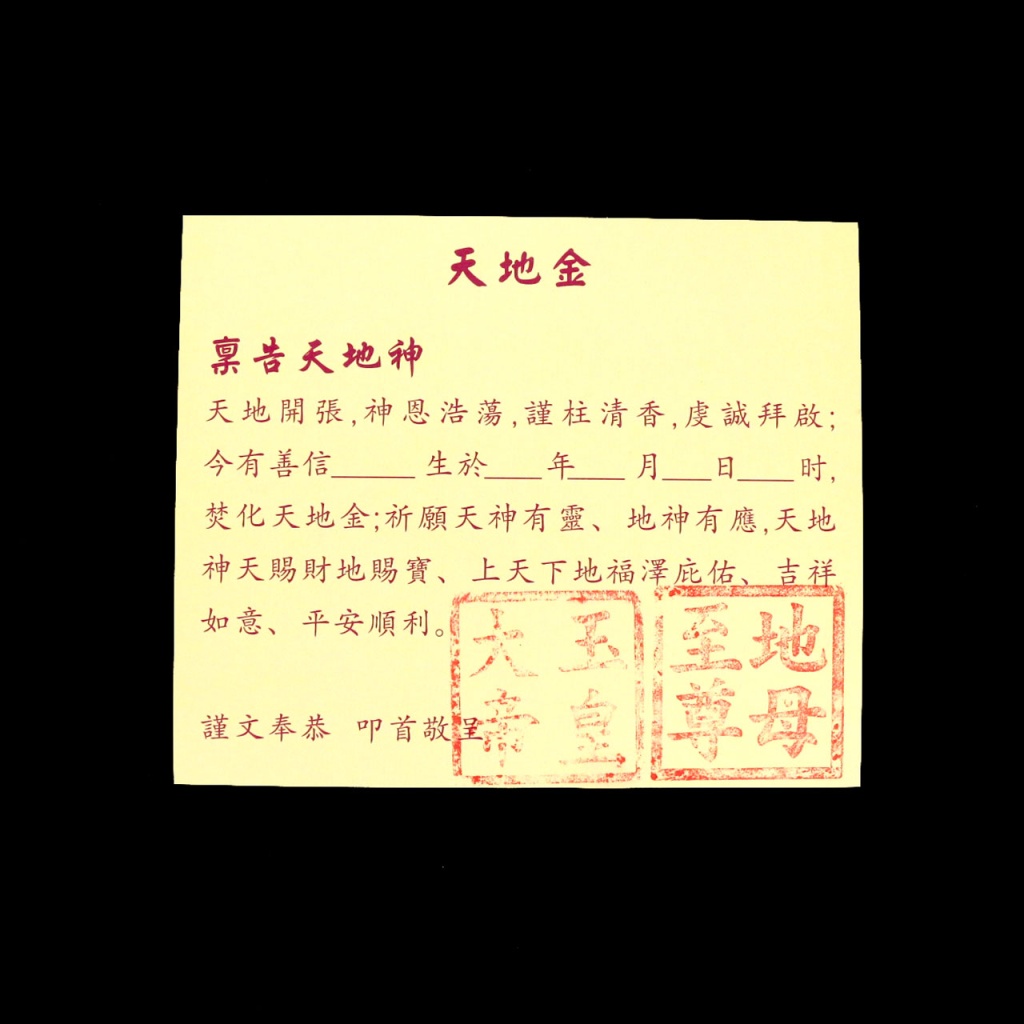 天地金
稟告天地神
天地開張,神恩浩蕩,謹柱清香,虔誠拜啟;
今有善信______ 生於____年____ 月____日____时,
焚化天地金;祈願天神有靈、地神有應,天地
神天賜財地賜寶、上天下地福澤庇佑、吉祥
如意、平安順利。
謹文奉恭 叩首敬呈
玉皇大帝
地母至尊